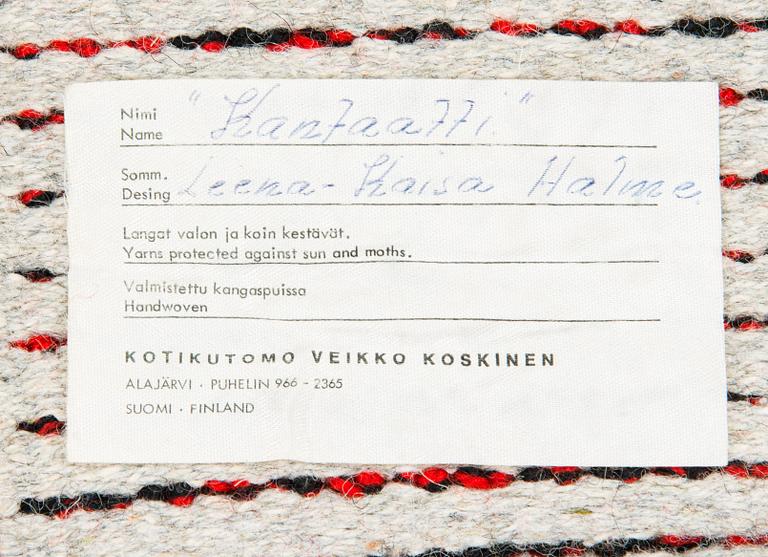 Nimi "Kantaatti"
Name
Somm. Leena-Kaisa Halme
Desing
Langat valon ja koin kestävät.
Yarns protected against sun and moths.
Valmistettu kangaspuissa
Handwoven
KOTIKUTOMO VEIKKO KOSKINEN
ALAJÄRVI · PUHELIN 966 - 2365
SUOMI · FINLAND